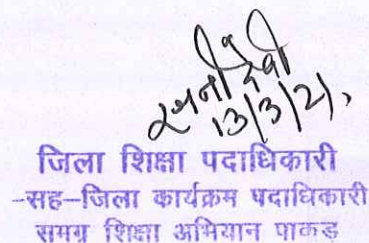 रजनी देवी
13/3/21,
जिला शिक्षा पदाधिकारी
-सह-जिला कार्यक्रम पदाधिकारी
समग्र शिक्षा अभियान पाकुड़